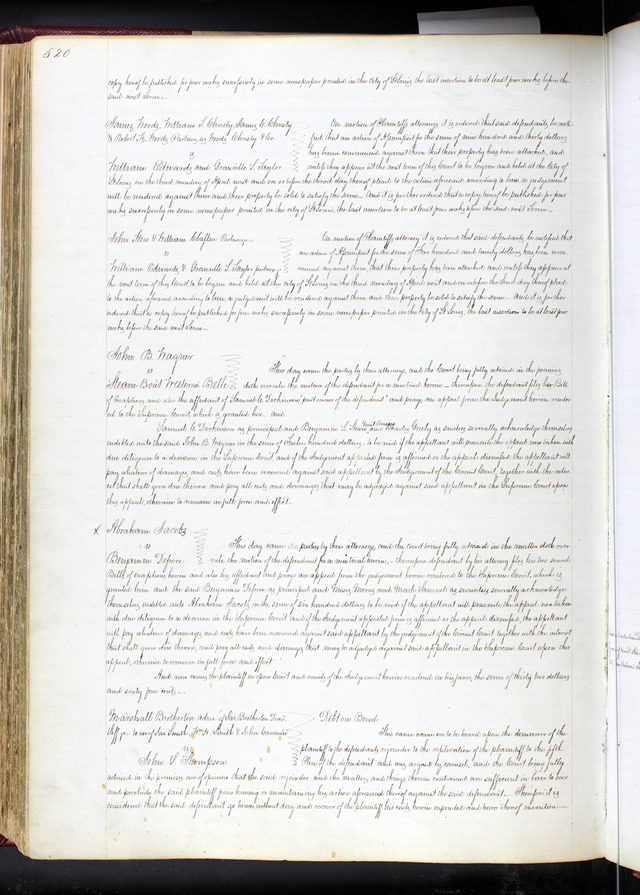 520
copy hereof be published for four weeks successively in some newspaper printed in the City of St Louis, the last insertion to be at least four weeks before the
said next Term.
James Woods, William S. Christy, James C. Christy
& Robert K. Woods Partners as Woods Christy & Co.
vs
William Edwards and Granville S. Taylor
On motion of Plaintiffs attorney it is ordered that said defendants be noti-
fied that an action of Assumpsit for the sum of nine hundred and thirty dollars
has been commenced against them that their property has been attached, and
unless they appear at the next term of this Court to be begun and held at the City of
St Louis on the third monday of April next and on or before the third day thereof plead to the action aforesaid according to law, a judgement
will be rendered against them and their property be sold to satisfy the same. And it is further ordered that a copy hereof be published for four
weeks successively in some newspaper printed in the city of St Louis, the last insertion to be at least four weeks before the said next Term.
John How & William Claflin Partners
vs
William Edwards & Granville S. Taylor partners
On motion of Plaintiffs attorney it is ordered that said defendants be notified that
an action of Assumpsit for the sum of five hundred and twenty dollars has been com-
menced against them, that their property has been attached and unless they appear at
the next term of this Court to be begun and held at the city of St Louis on the third monday of April next and on or before the third day thereof plead
to the action aforesaid according to law, a judgement will be rendered against them and their property be sold to satisfy the same. And it is further
ordered that a copy hereof be published for four weeks successively in some newspaper printed in the City of St Louis, the last insertion to be at least four
weeks before the said next Term.
John B. Wagner
vs
Steam Boat Western Belle
This day came the parties by their attorneys, and the Court being fully advised in the premises
doth overrule the motion of the defendant for a new trial herein. Thereupon the defendant files her Bill
of Exceptions and also the affidavit of Samuel C. Dickinson part owner of the defendant and prays an appeal from the Judgement herein render-
ed to the Supreme Court, which is granted her. and
Samuel C. Dickinson as principal and Benjamin L. and Charles Greely as sureties severally acknowledge themselves
indebted unto the said John B. Wagner in the sum of Twelve hundred dollars. To be void if the appellant will prosecute the appeal now taken with
due diligence to a decision in the Supreme Court, and if the Judgement appealed from is affirmed or the appeal dismissed the appellant will
pay whatever of damages and costs have been recovered against said appellant by the Judgement of the Circuit Court, together with the inter-
est that shall grow due thereon and pay all costs and damages that may be adjudged against said appellant in the Supreme Court upon
this appeal, otherwise to remain in full force and effect.
X Abraham Jacobs
vs
Benjamin Deforce
This day came the parties by their attorneys, and the court being fully advised in the matter doth over-
rule the motion of the defendant for a new trial herein, thereupon defendant by his attorney files his two several
Bills of exceptions herein and also his affidavit and prays an appeal from the judgement herein rendered to the Supreme Court, which is
granted him and the said Benjamin Deforce as principal and and Mark Samuel as securities severally acknowledge
themselves indebted unto Abraham Jacobs in the sum of six hundred dollars to be void if the appellant will prosecute the appeal now taken
with due diligence to a decision in the Supreme Court and if the Judgement appealed from is affirmed or the appeal dismissed, the appellant
will pay whatever of damages and costs have been recovered against said appellant by the judgement of the Circuit Court together with the interest
that shall grow due thereon, and pay all costs and damages that may be adjudged against said appellant in the Supreme Court upon this
appeal, otherwise to remain in full force and effect.
And now comes the plaintiff in open Court and remits of the Judgement herein rendered in his favor, the sum of thirty two dollars
and sixty four cents.
Marshall Brotherton admr of Jas. Brotherton Decd.
Shff &c. to use of Jas. Smith, Wm H. Smith & John
vs
John S. Thompson
Debt on Bond
This cause came on to be heard upon the demurrer of the
plaintiff to the defendants rejoinder to the replication of the plaintiff to the fifth
Plea of the defendant and was argued by counsel, and the Court being fully
advised in the premises are of opinion that the said rejoinder and the matters and things therein contained are sufficient in law to bar
and preclude the said plaintiff from having or maintaining his action aforesaid thereof against the said defendant. Therefore it is
considered that the said defendant go hence without day and recover of the plaintiff his costs herein expended and have thereof execution